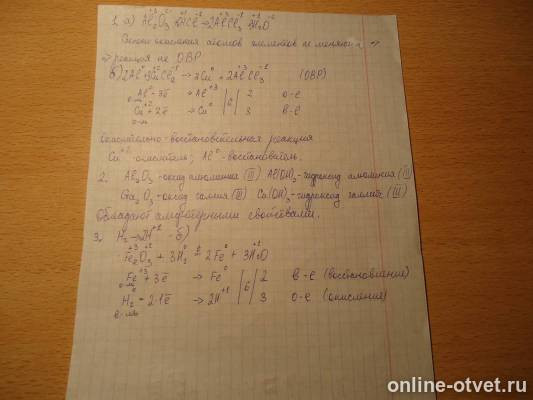 +3 -2 +1 -1 +3 -1 +1 -2
1. а) Al2O3 + 6HCl → 2AlCl3 + 3H2O
Степени окисления атомов элементов не меняются ⇒
⇒ реакция не ОВР.
б) 2Al0 + 3CuCl2 → 3Cu0 + 2AlCl3 (ОВР)
Al0 - 3ē → Al+3 | 6 | 2 о-е
в-ль
Cu+2 + 2ē → Cu0 3 в-е
о-ль
Окислительно-восстановительная реакция
Cu+2 - окислитель; Al0 - восстановитель.
2. Al2O3 - оксид алюминия (III) Al(OH)3 - гидроксид алюминия (III)
Ga2O3 - оксид галлия (III) Ga(OH)3 - гидроксид галлия (III)
Обладают амфотерными свойствами.
3. H2 → 2H+1 - б)
+3 -2 0 t 0 +1 -2
Fe2O3 + 3H2 → 2Fe + 3H2O
Fe+3 + 3ē → Fe0 | 6 | 2 в-е (восстановление)
о-ль
H2 - 2·1ē → 2H+1 3 о-е (окисление)
в-ль
online-otvet.ru